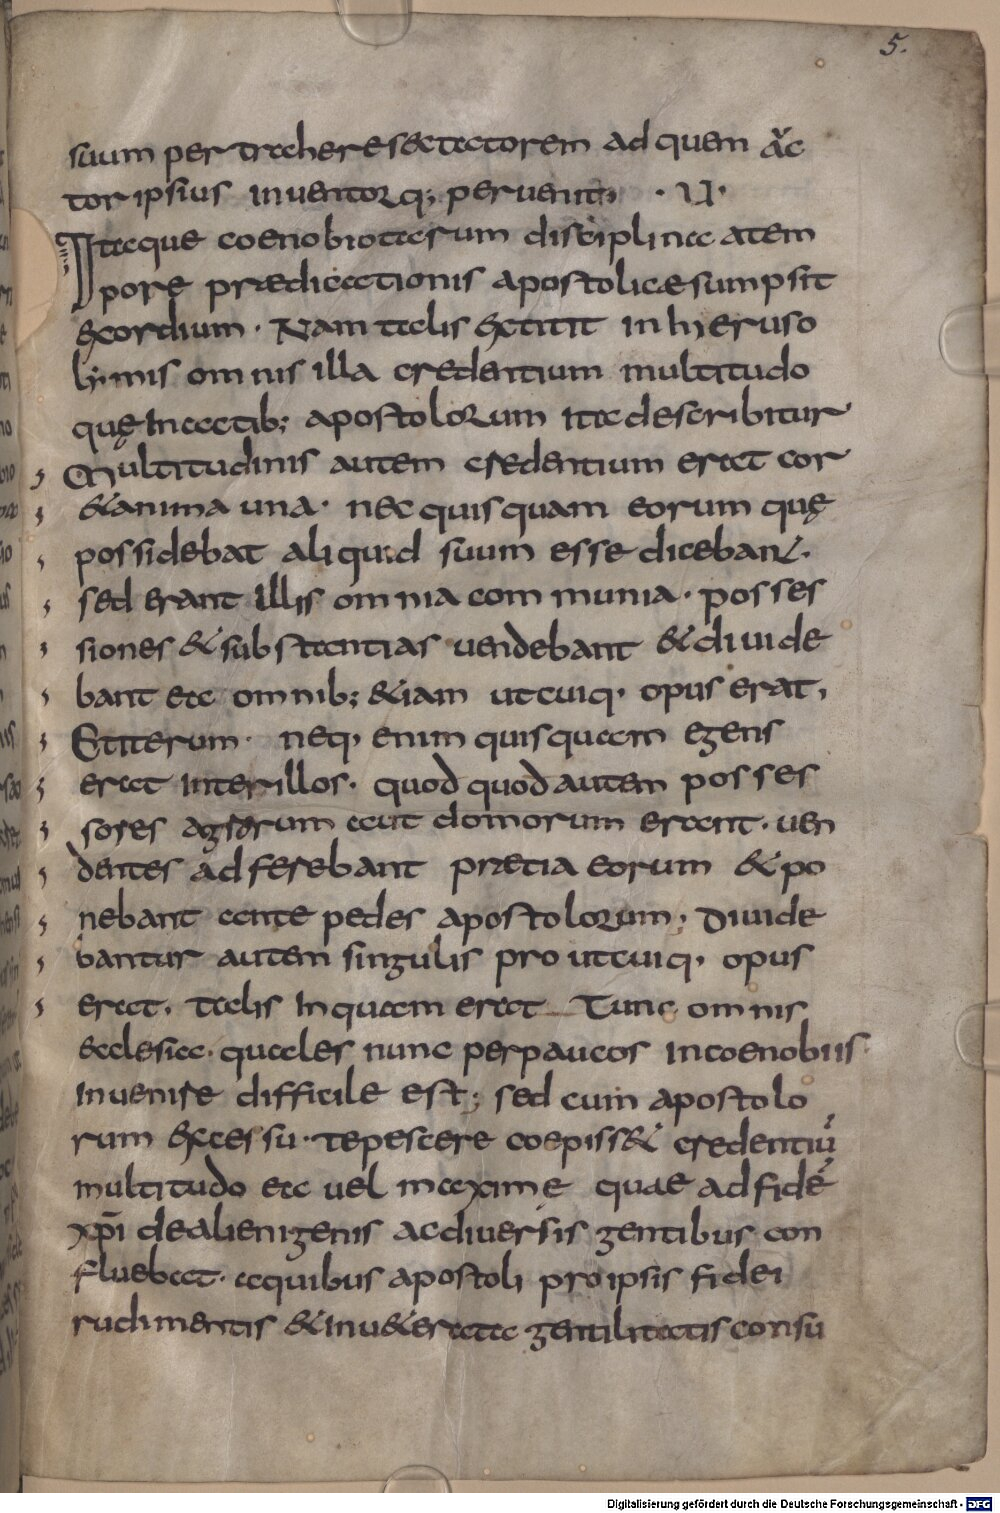 5.
suum pertrahere sectatorem ad quem ac
tor ipsius inuentorq; peruenit; · U ·
Itaque coenobiotarum disciplinae a tem
pore praedicationis apostolicae sumpsit
exordium · Nam talis extitit in hieruso
lymis omnis illa credentium multitudo
quę in actib; apostolorum ita describitur
Multitudinis autem credentium erat cor
& anima una · nec quisquam eorum quę
possidebat aliquid suum esse diceban&.
sed erant illis omnia communia · posses
siones & substantias uendebant & diuide
bant ea omnib; &iam ut cuiq· opus erat,
Et iterum · neq, enim quisquam egens
erat inter illos · quodquod autem posses
sores agrorum aut domorum erant · uen
dentes adferebant prætia eorum & po
nebant ante pedes apostolorum; Diuide
bantur autem singulis pro ut cuiq· opus
erat. talis inquam erat Tunc omnis
ecclesia · quales nunc perpaucos in coenobiis
inuenire difficile est; sed cum apostolo
rum excessu · tepescere coepiss& credentiū
multitudo ea uel maxime quae ad fidē
xp̄i de alienigenis ac diuersis gentibus con
fluebat · a quibus apostoli pro ipsis fidei
rudimentis & inu&erata gentilitatis consu
Digitalisierung gefördert durch die Deutsche Forschungsgemeinschaft - DFG